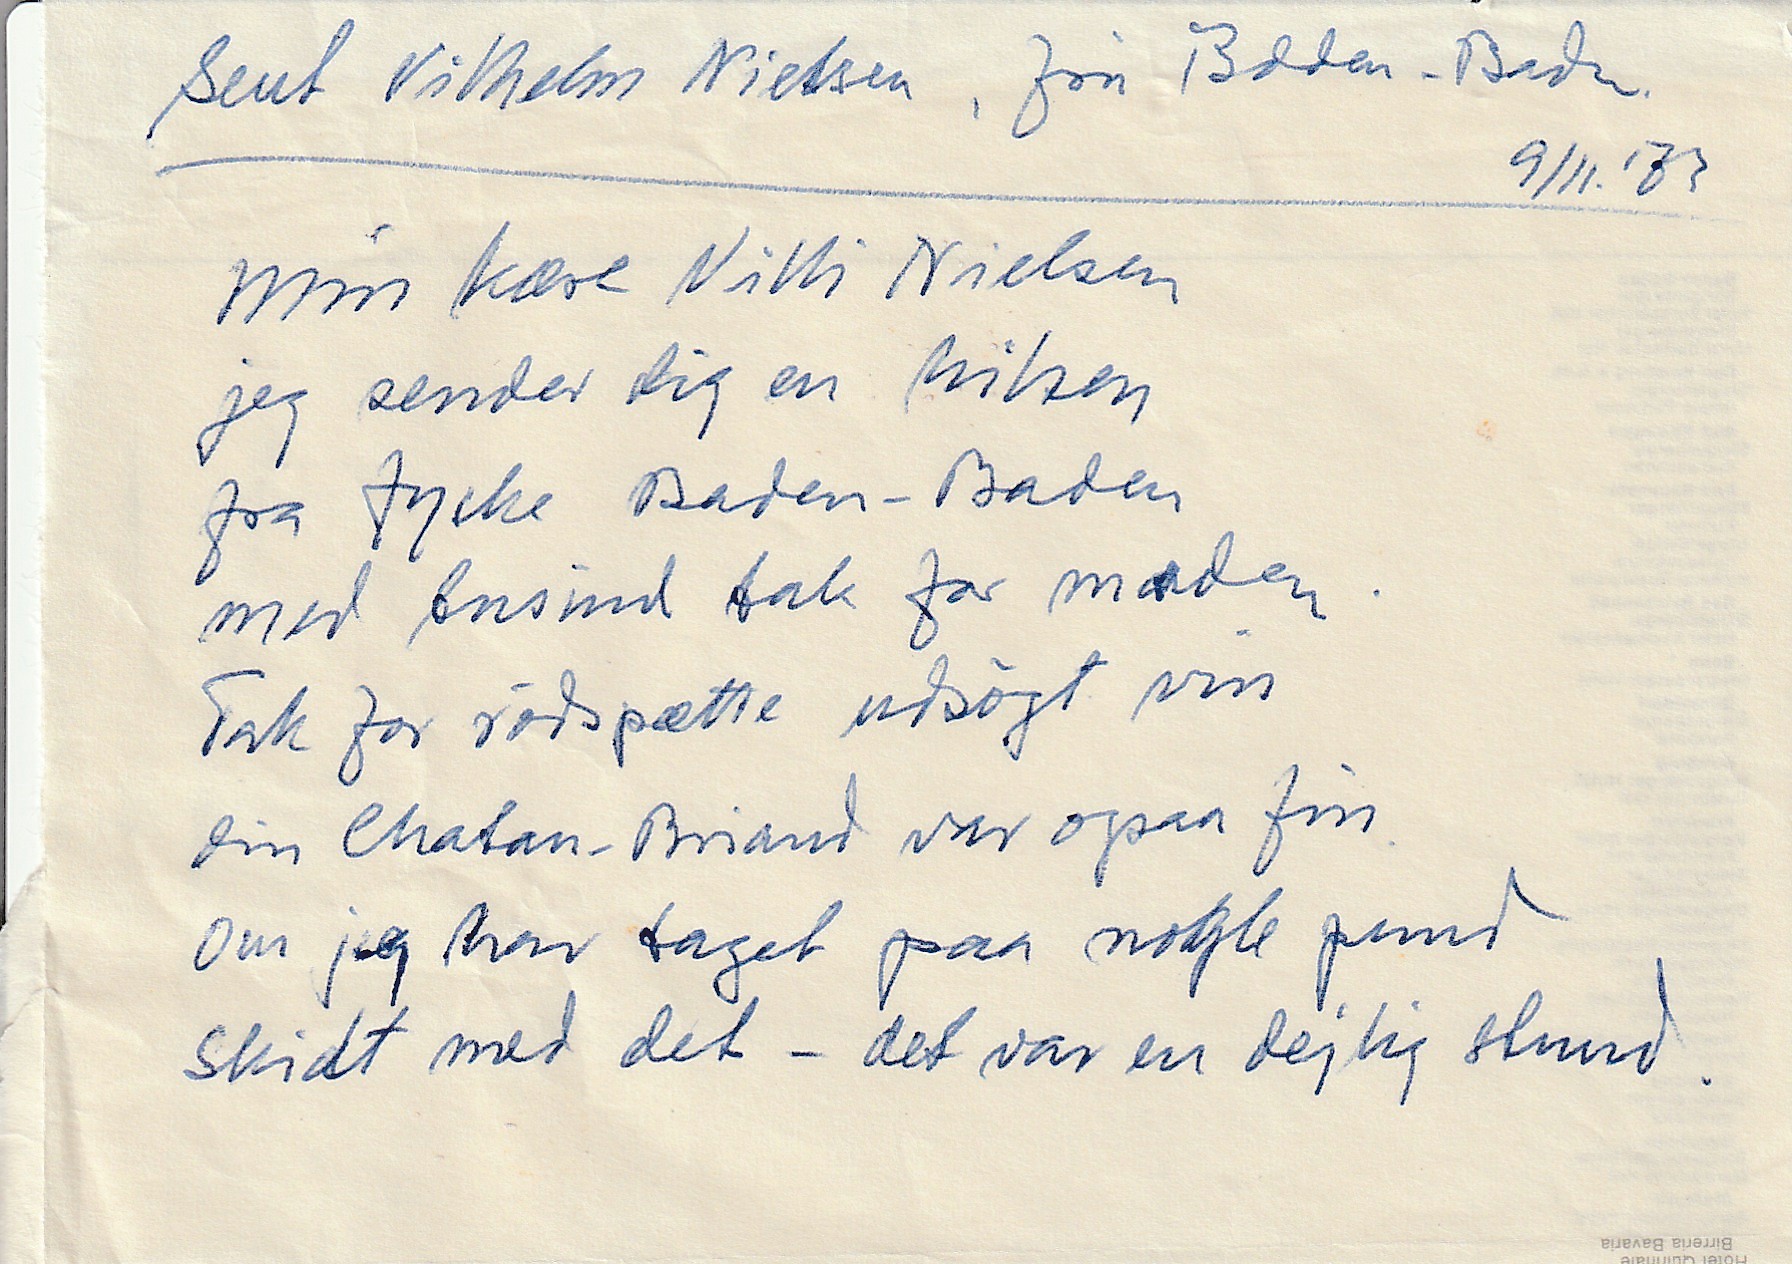 Sent Vilhelm Nielsen, fra Baden-Baden.
9/11. '73
Min kære Villi Nielsen
jeg sender dig en hilsen
fra tyske Baden-Baden
med tusind tak for maden.
Tak for rödspætte udsögt vin
din Chatau-Briand var opaa fin.
Om jeg har taget paa nogle pund
Skidt med det - det var en dejlig stund.
Birreria Bavaria
Hotel Quirinale